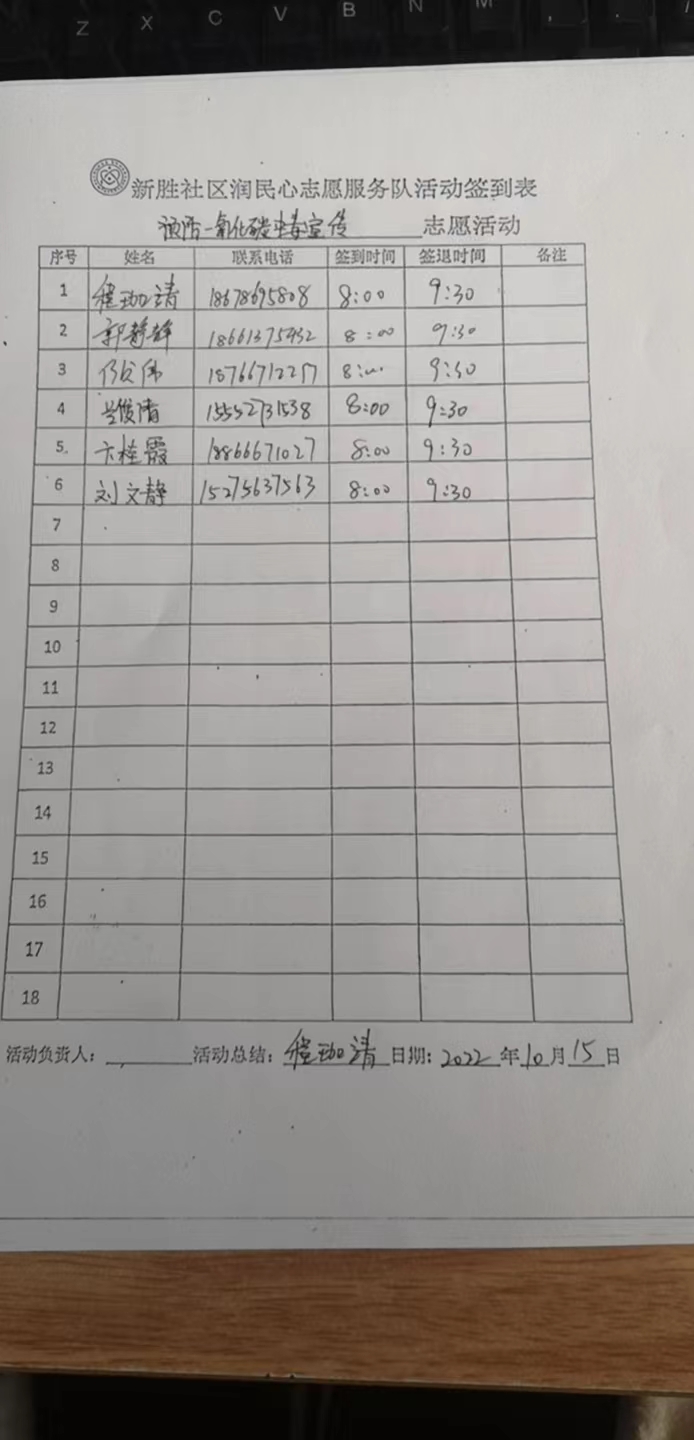 Z X C V B N M , . /
新胜社区润民心志愿服务队活动签到表
预防一氧化碳中毒宣传 志愿活动
序号 姓名 联系电话 签到时间 签退时间 备注
1 程珈请 18678695808 8:00 9:30
2 郭静静 18661375432 8:00 9:30
3 8:00 9:30
4 俊清 15552731538 8:00 9:30
5 卞桂霞 18866671027 8:00 9:30
6 刘文静 15275637563 8:00 9:30
7
8
9
10
11
12
13
14
15
16
17
18
活动负责人: 活动总结: 程珈请 日期: 2022 年 10 月 15 日